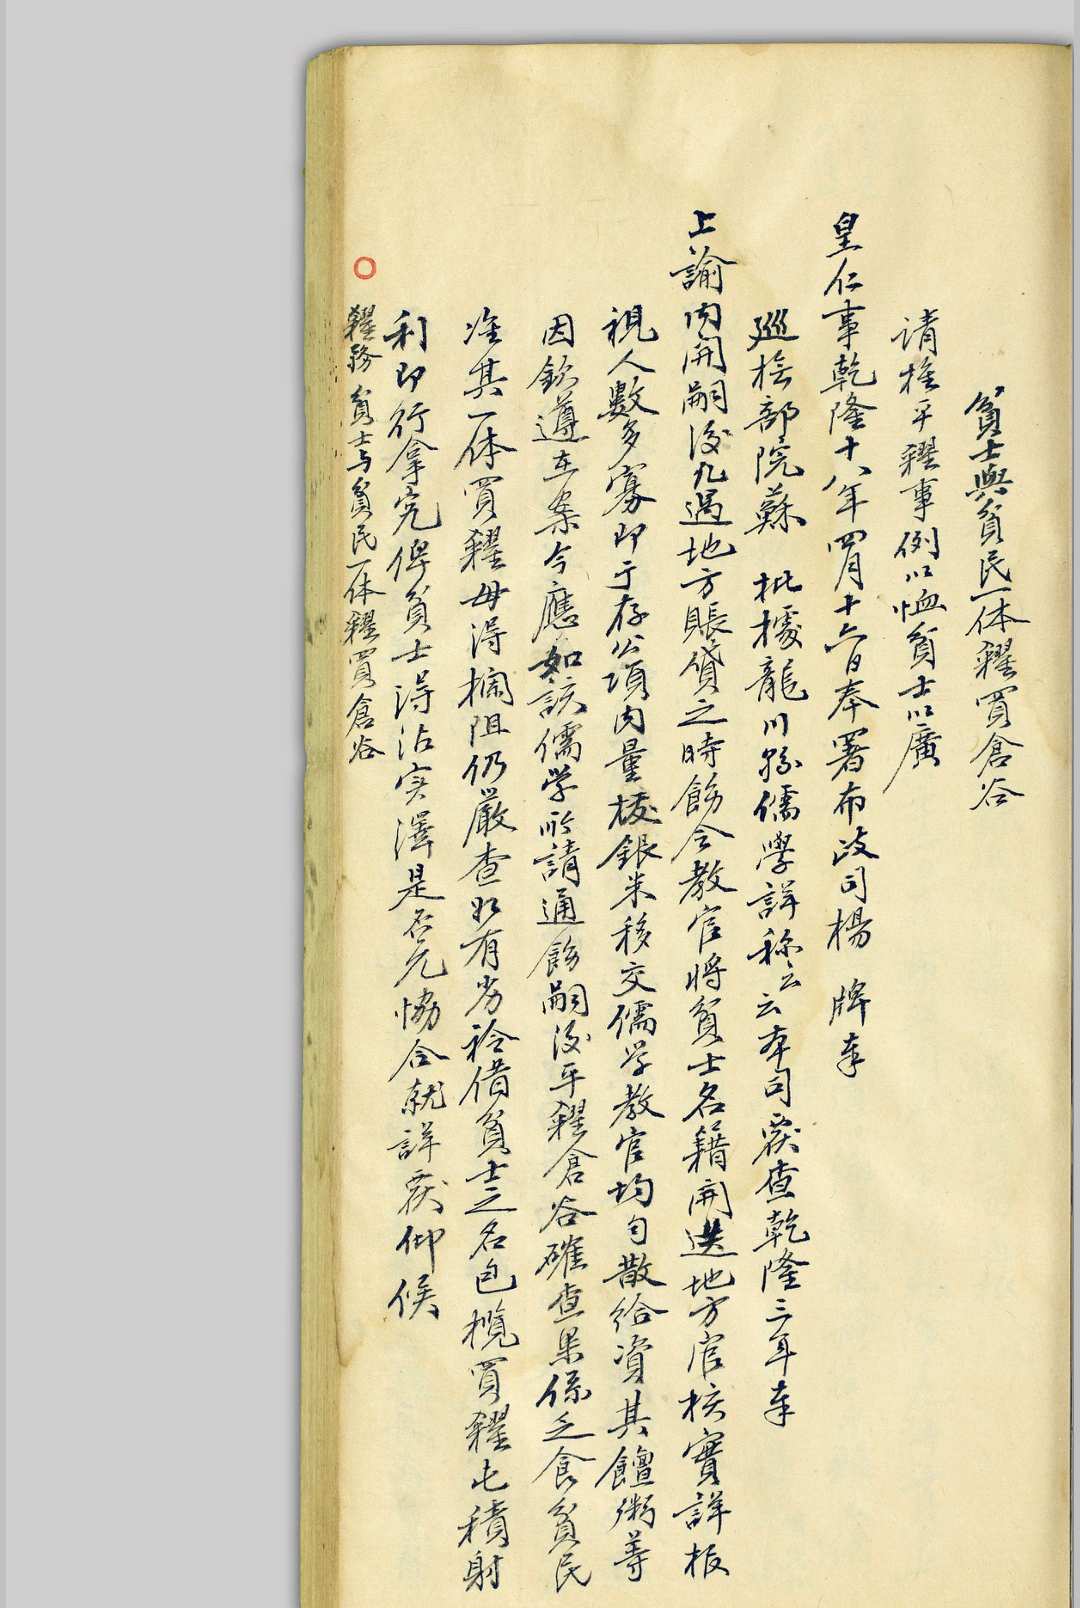 貧士與貧民一体糴買倉谷
請推平糴事例以恤貧士以廣
皇仁事乾隆十八年四月十六日奉署布政司楊 牌奉
廵撫部院蘇 批據龍川縣儒學詳称云云本司覆查乾隆三年奉
上諭內開嗣後凡遇地方賬貸之時飭令教官將貧士名籍開送地方官核實詳报
視人數多寡即于存公項內量撥銀米移交儒学教官均匀散給資其饘粥等
因欽遵在案今應如該儒学所請通飭嗣後平糴倉谷確查果係乏食貧民
准其一体買糴毋得攔阻仍嚴查如有劣衿借貧士之名包攬買糴屯積射
利即行拿究俾貧士得沾实澤是否允協合就詳覆仰候
糴務 貧士与貧民一体糴買倉谷